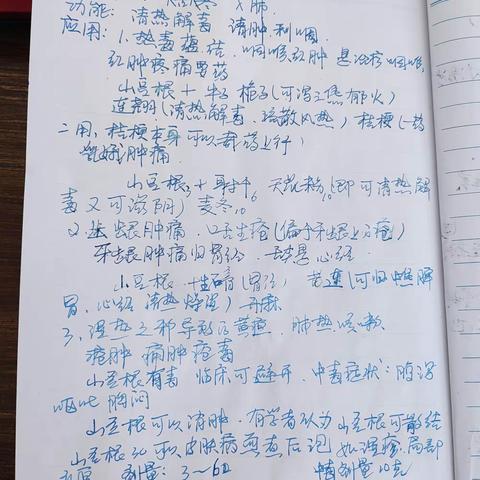 功能: 清热解毒 清肿利咽
应用: 1. 热毒蕴结. 咽喉红肿 是治疗咽喉
红肿疼痛要药
山豆根 + 牛子 栀子(可泻三焦郁火)
连翘(清热解毒. 疏散风热) 桔梗(一药
二用, 桔梗本身可以载药上行)
肿痛.
山豆根3 + 射干6 天花粉10(即可清热解
毒又可滋阴) 麦冬10
2. 牙龈肿痛. 口舌生疮(偏于牙龈上方疮)
牙龈肿痛归胃经. 舌是心经
山豆根. 生石膏(胃经) 黄连(可归中焦解
胃. 心经 清热燥湿) 丹
3, 湿热之邪导致的黄疸. 肺热咳嗽.
疮肿 痛肿疮毒
山豆根有毒 临床可避开. 中毒症状: 腹泻
呕吐 胸闷
山豆根可以消肿. 有学者认为山豆根可散结
山豆根还可以皮肤病煎煮后泡 如湿疹. 局部
剂量: 3~6g 剂量10克